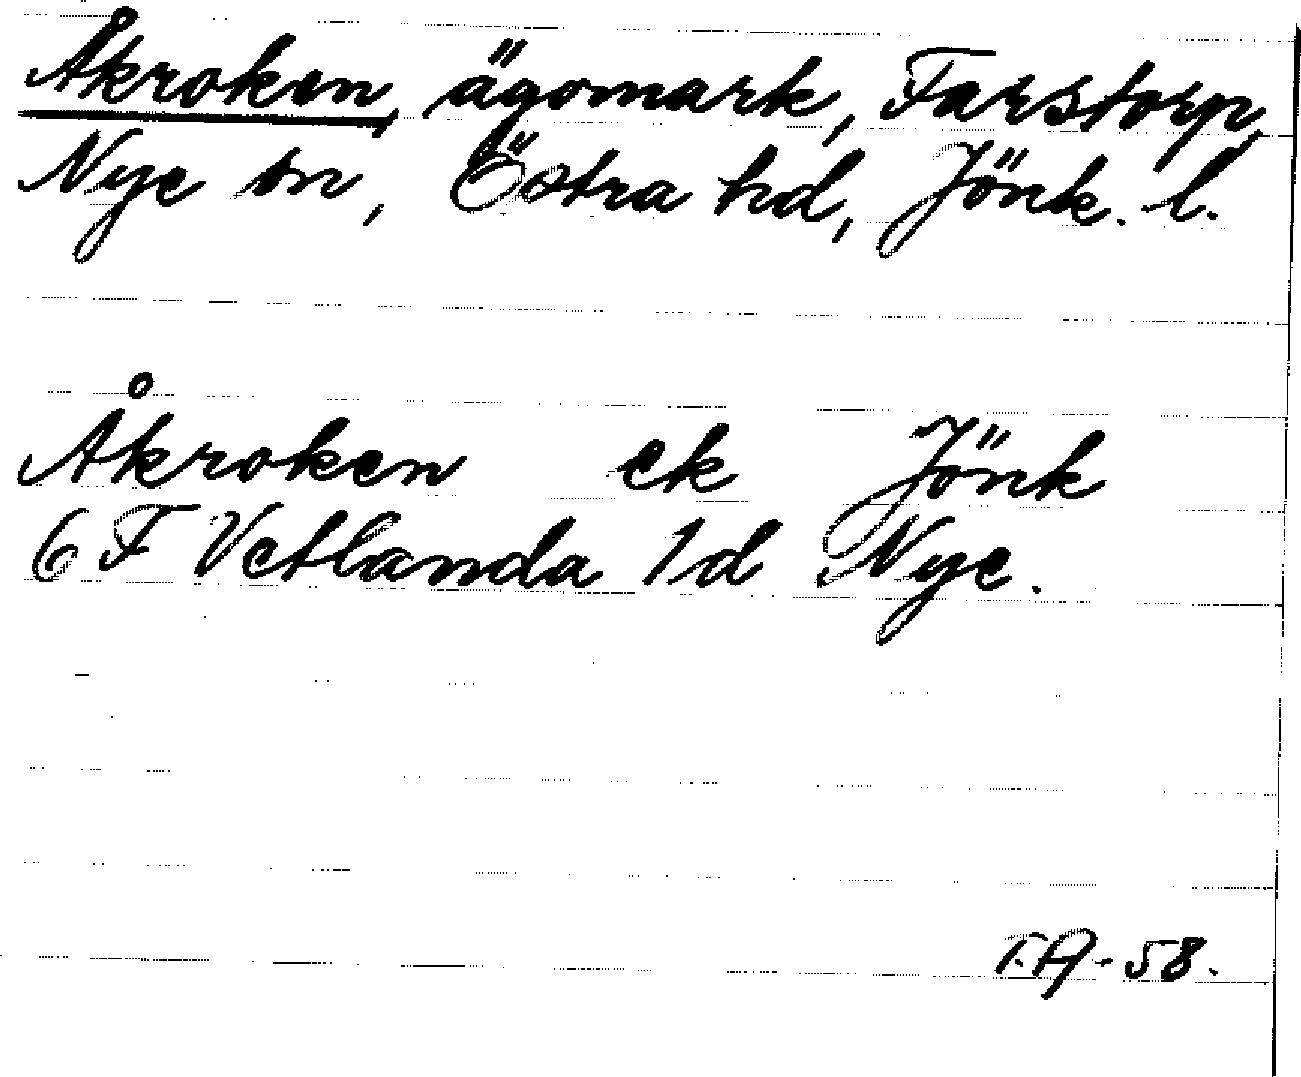 Åkroken, ägomark, Farstorp,
Nye sn, Östra hd, Jönk. l.
Åkroken ek Jönk
6 F Vetlanda 1d Nye.
T.A-58.